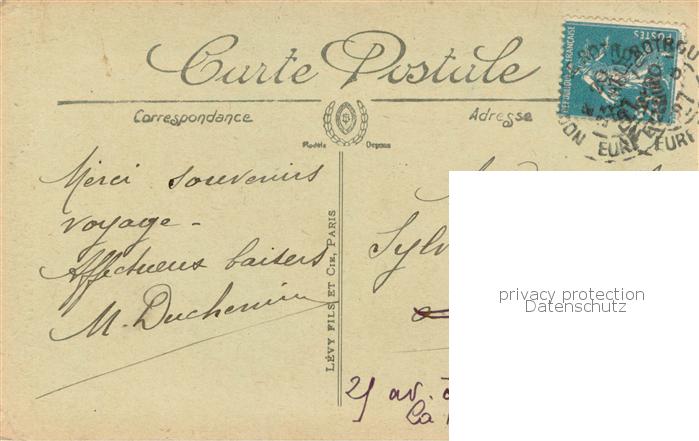 Carte Postale
Correspondance
Adresse
Modèle Déposé
RÉPUBLIQUE FRANÇAISE
POSTES
EURE
EURE
Merci souvenirs
voyage -
Affectueux baisers
M. Duchemin
LÉVY FILS ET CIE, PARIS
Sylv
25 av.
La
privacy protection
Datenschutz